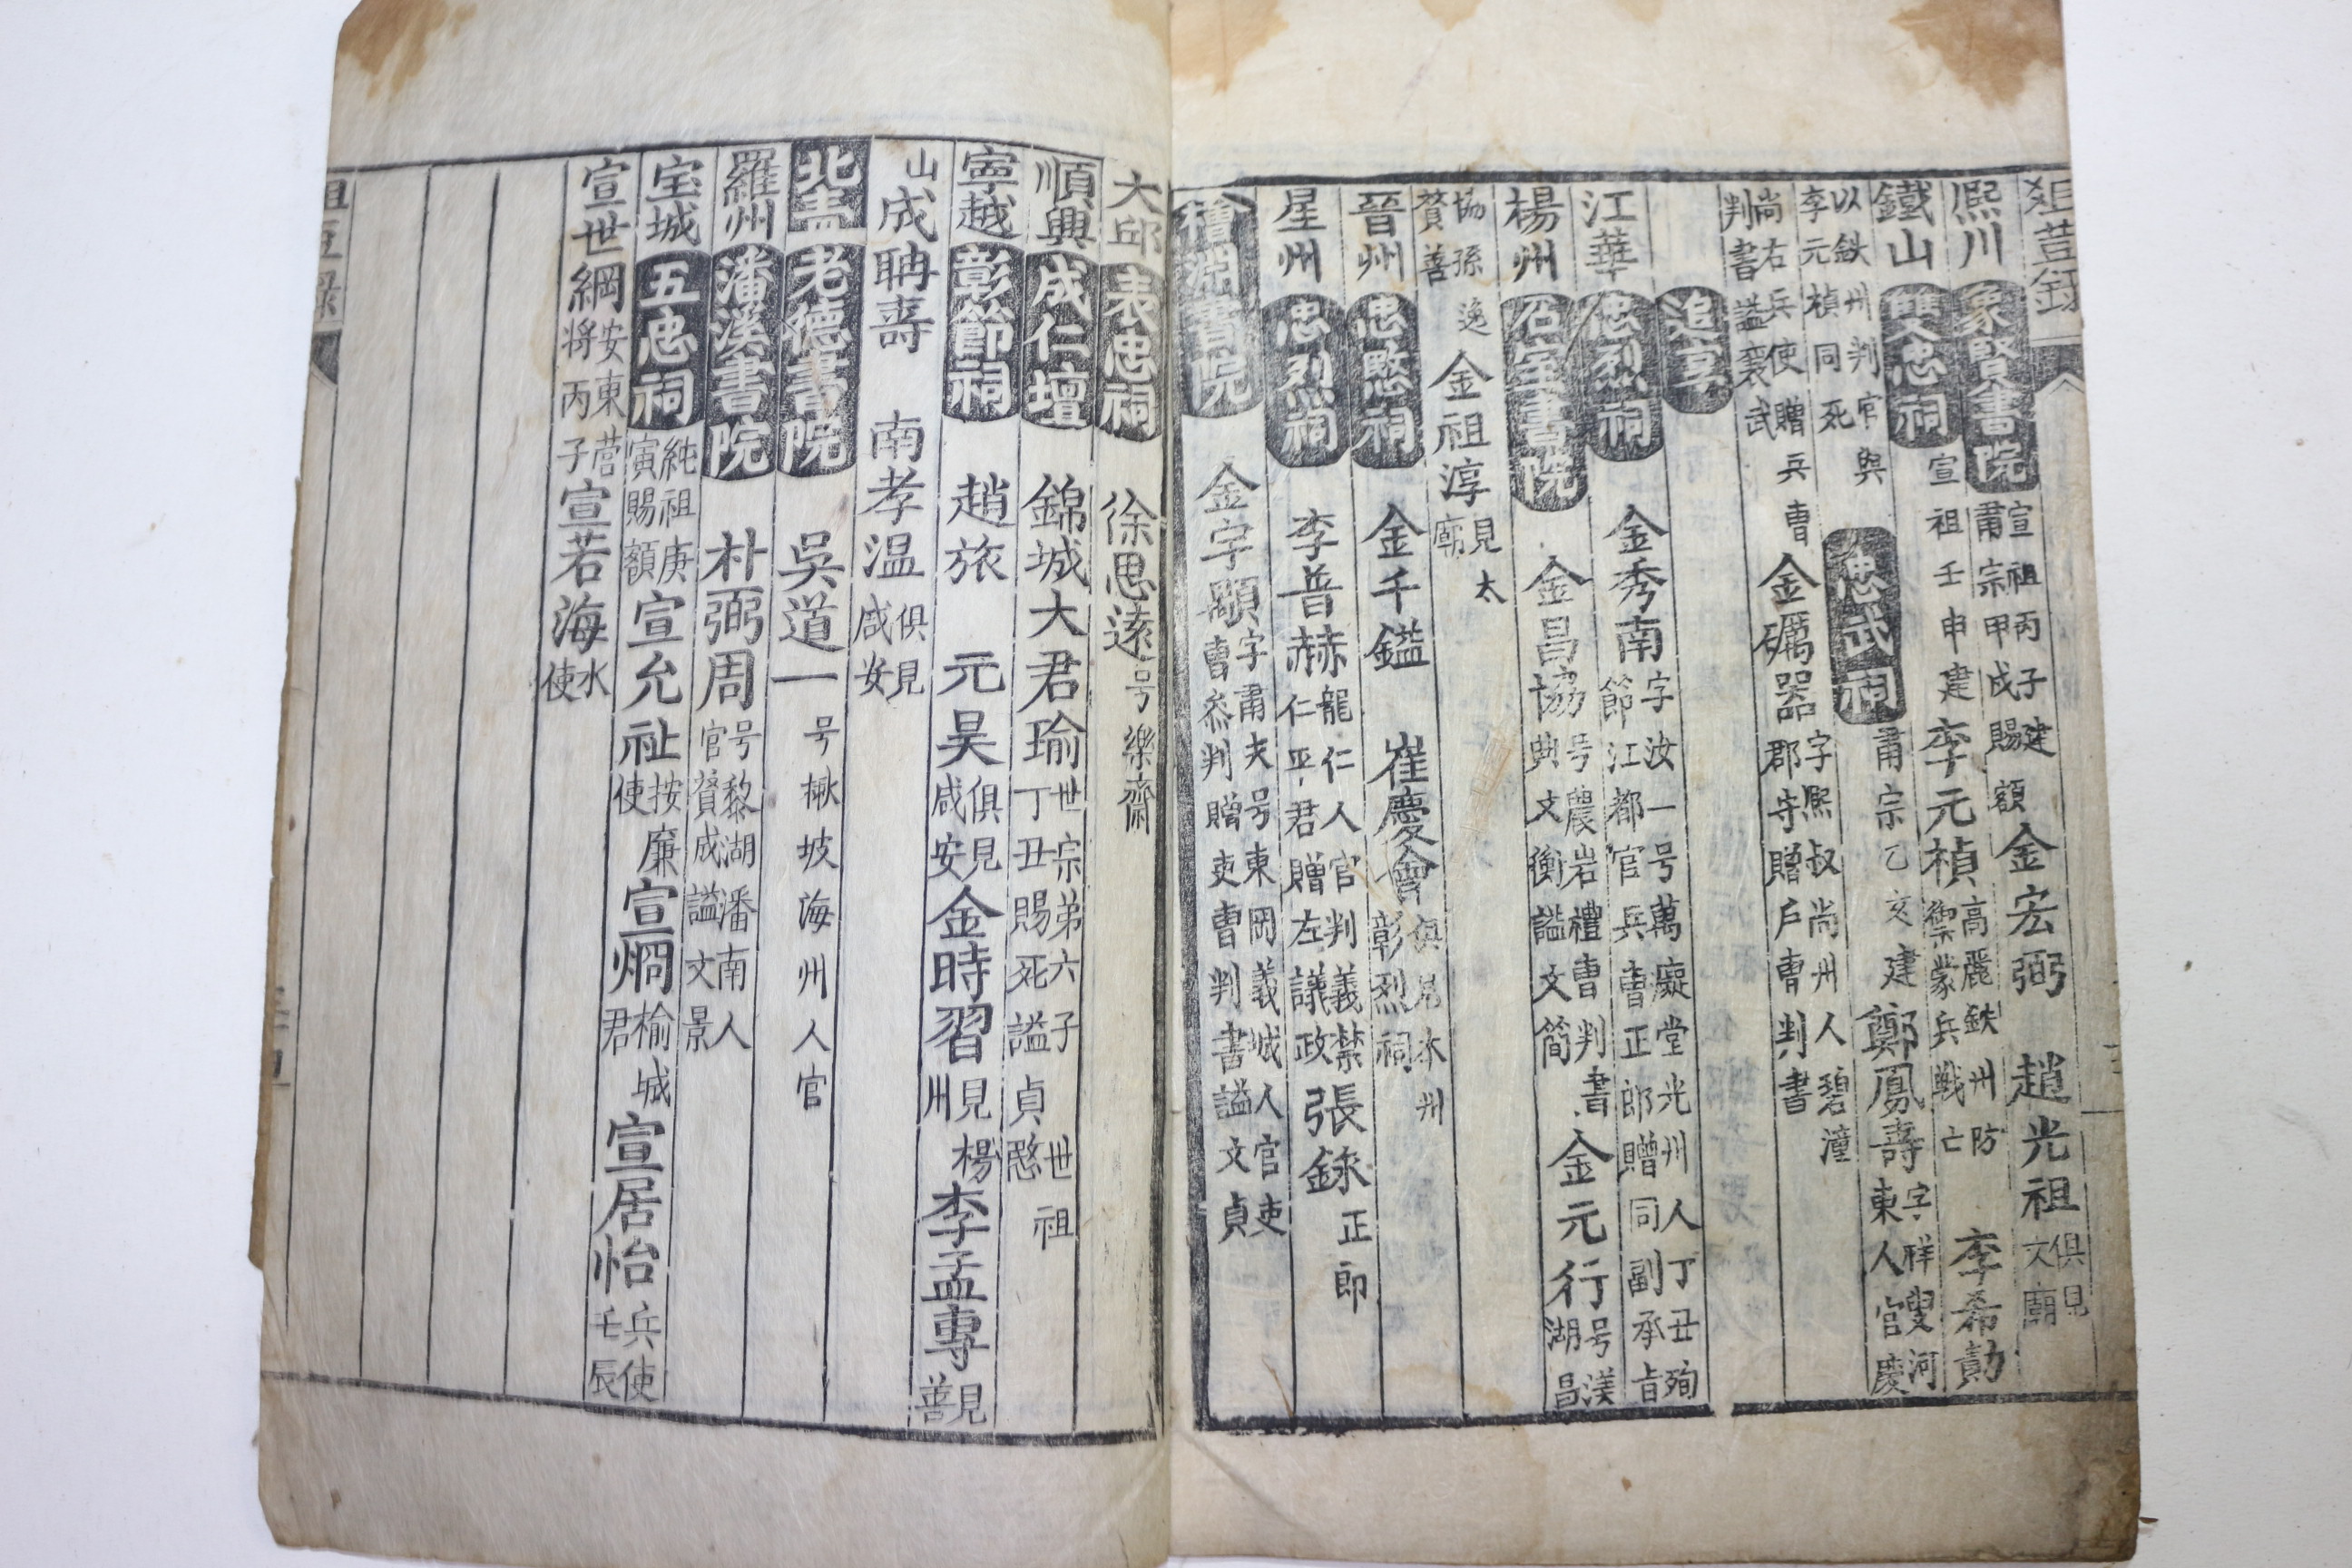 俎荳錄
熙川 象賢書院 宣祖丙子建肅宗甲戌賜額 金宏弼 趙光祖 俱見文廟
鐵山 雙忠祠 宣祖壬申建 李元楨 高麗鉄州防禦蒙兵戦亡 李希勣
以鉄州判官與李元楨同死 忠武祠 肅宗乙亥建 鄭鳳壽 字祥叟河東人官慶
尚右兵使贈兵曹判書謚襄武 金礪器 字熙叔尚州人碧潼郡守贈戶曹判書
追享
江華 忠烈祠 金秀南 字汝一号萬癡堂光州人丁丑殉節江都官兵曹正郎贈同副承旨
楊州 石室書院 金昌協 号農岩禮曹判書典文衡謚文簡 金元行 号渼湖昌
協孫逸贊善 金祖淳 見太廟
晉州 忠愍祠 金千鎰 崔慶會 俱見本州彰烈祠
星州 忠烈祠 李普赫 龍仁人官判義禁仁平君贈左議政 張錄 正郎
檜淵書院 金宇顒 字肅夫号東岡義城人官吏曹參判贈吏曹判書謚文貞
大邱 表忠祠 徐思遠 号樂齋
順興 成仁壇 錦城大君瑜 世宗弟六子世祖丁丑賜死謚貞愍
寧越 彰節祠 趙旅 元昊 俱見咸安 金時習 見楊州 李孟專 見善
山 成聃壽 南孝温 俱見咸安
北靑 老德書院 吳道一 号楸坡海州人官
羅州 潘溪書院 朴弼周 号黎湖潘南人官贊成謚文景
宝城 五忠祠 純祖庚寅賜額 宣允祉 按廉使 宣烱 榆城君 宣居怡 兵使壬辰
宣世綱 安東营将丙子 宣若海 水使